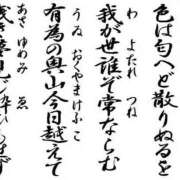 色は匂へど散りぬるを
わ よ たれ つね
我が世誰ぞ常ならむ
うゐ おくやま けふ こ
有為の奥山今日越えて
あさ ゆめ み ゑ